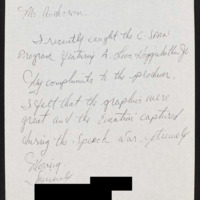 Mr. Anderson
I recently caught the C Span
Program featuring A. Leon Higginbotham Jr.
My compliments to the producer.
I felt that the graphics were
great and the emotion captured
during the speech was